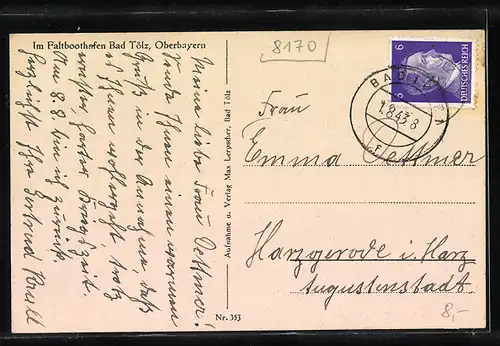 Im Faltboothafen Bad Tölz, Oberbayern
8170
6
6
DEUTSCHES REICH
BAD TÖLZ 1
1.8.43.8
Meine liebe Frau Oettmer!
Sende Ihnen einen warmen
Gruß in der Annahme, daß
es Ihnen wohlergeht, trotz
harter Kriegszeit.
Am 8.8 bin ich zurück.
Herzlichst Ihre Gertrud
Aufnahme u. Verlag Max Lerpscher, Bad Tölz
Frau
Emma Oettmer
Harzgerode i. Harz
Augustenstadt.
8,-
Nr. 353